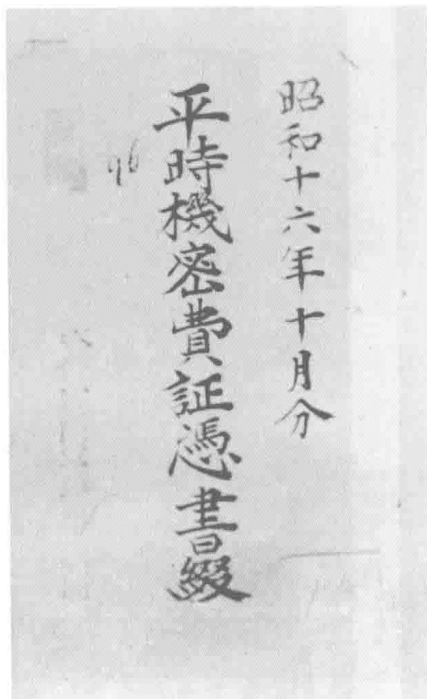 昭和十六年十月分
平時機密費証憑書綴
96